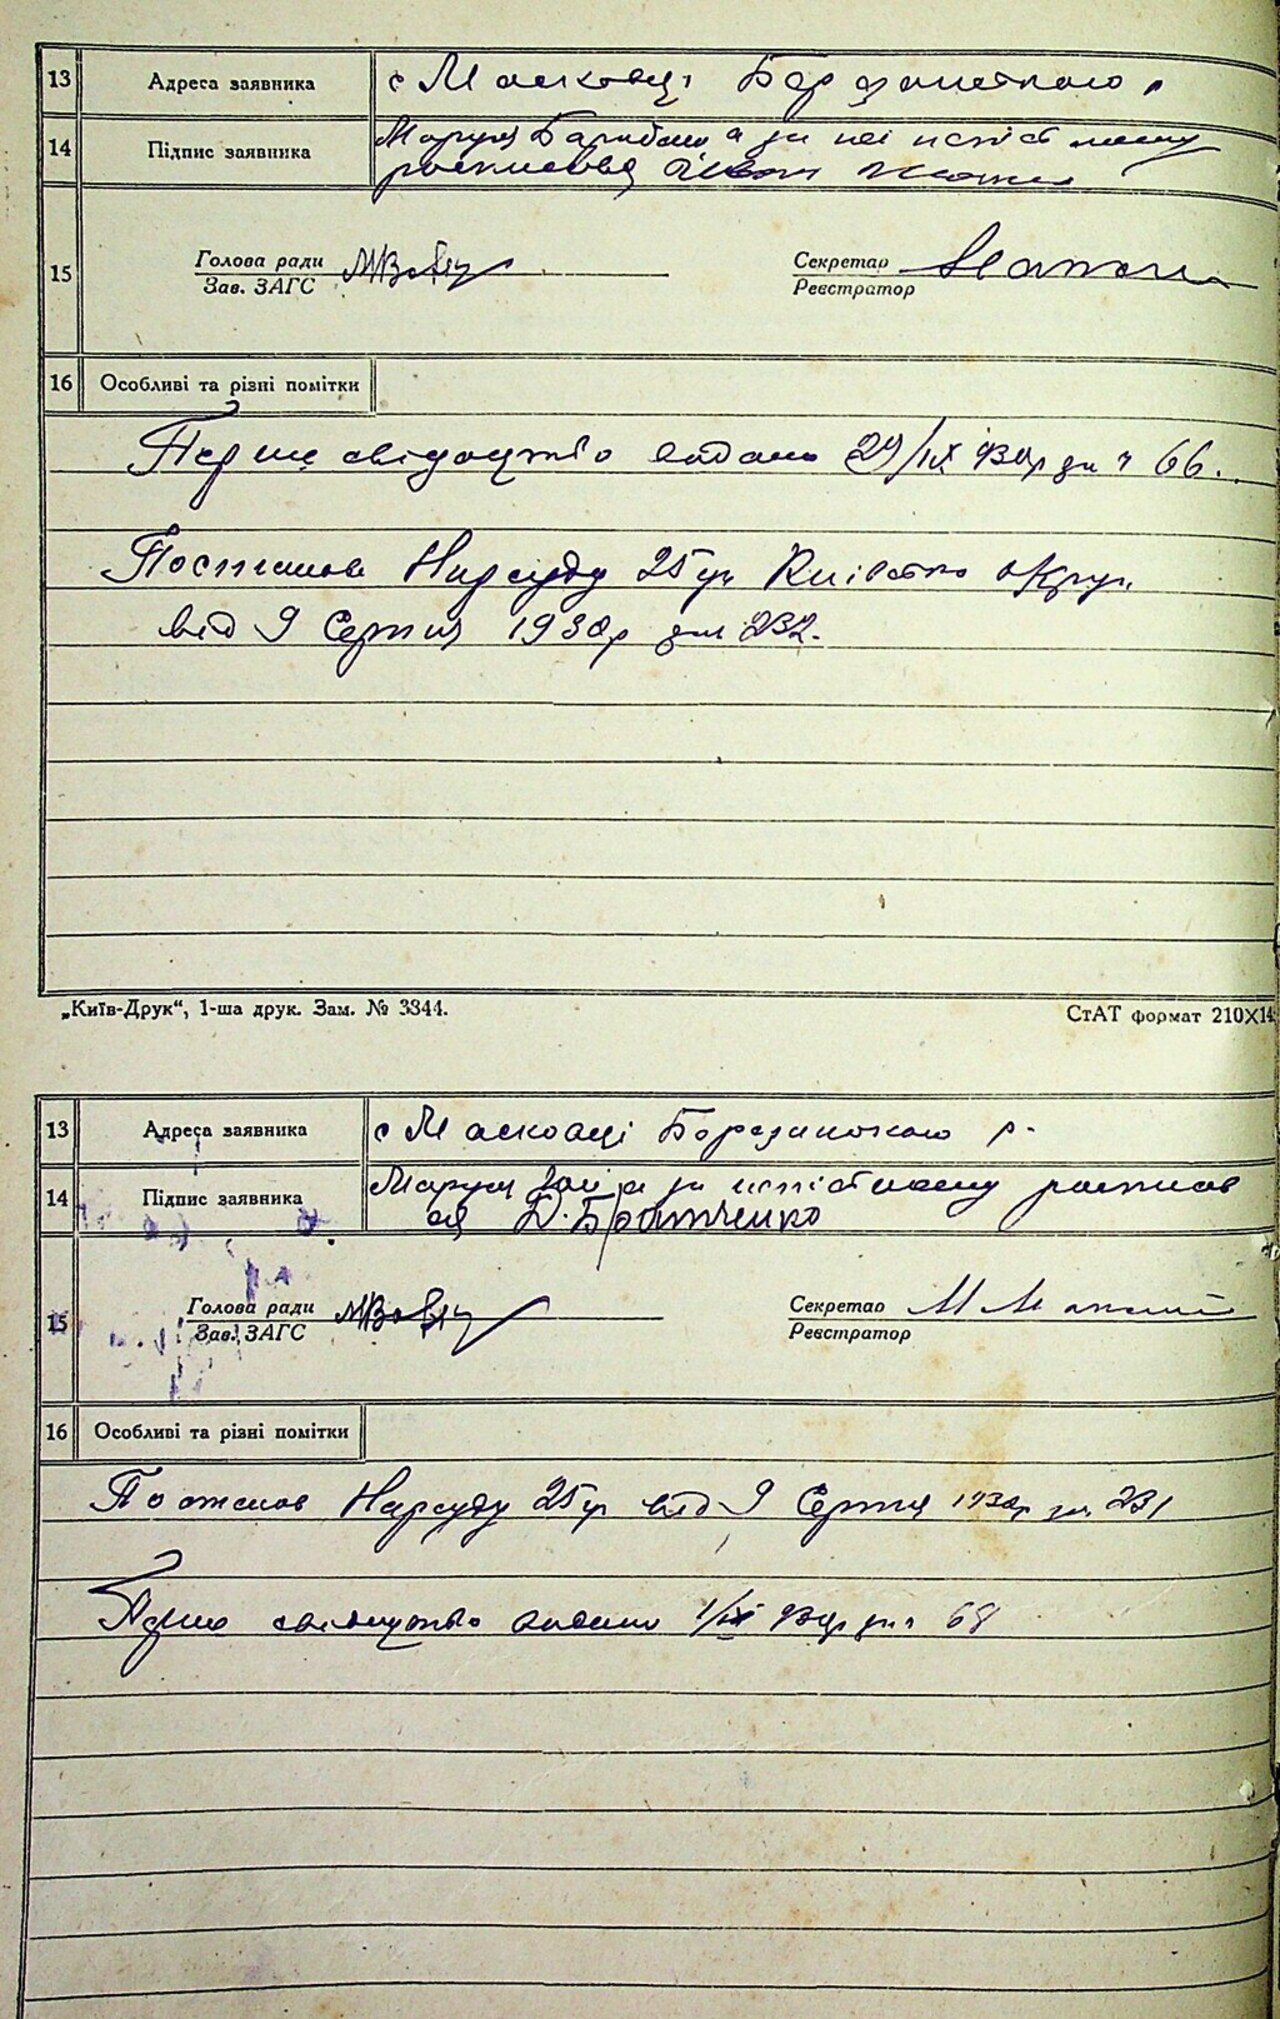 13 Адреса заявника с Масковці Борзанського р
14 Підпис заявника Маруся а за неї непісьмену
росписався Іван
15 Голова ради
Зав. ЗАГС
Секретар
Реєстратор
16 Особливі та різні помітки
Перше свідоцтво видано 29/IX 930р за ч 66.
Постанов Нарсуду 25 уч Київсько округ.
від 9 Серпня 1930р за 232.
„Київ-Друк“, 1-ша друк. Зам. № 3344.
СтАТ формат 210X14
13 Адреса заявника с Масковці Борозинського р.
14 Підпис заявника Маруся а за непісьмену росписав
ся Д. Братченко
15 Голова ради
Зав. ЗАГС
Секретар
Реєстратор
16 Особливі та різні помітки
Постанов Нарсуду 25 уч від 9 Серпня 1930р за 231
Перше свідоцтво видано 1/IX 930р за ч 68